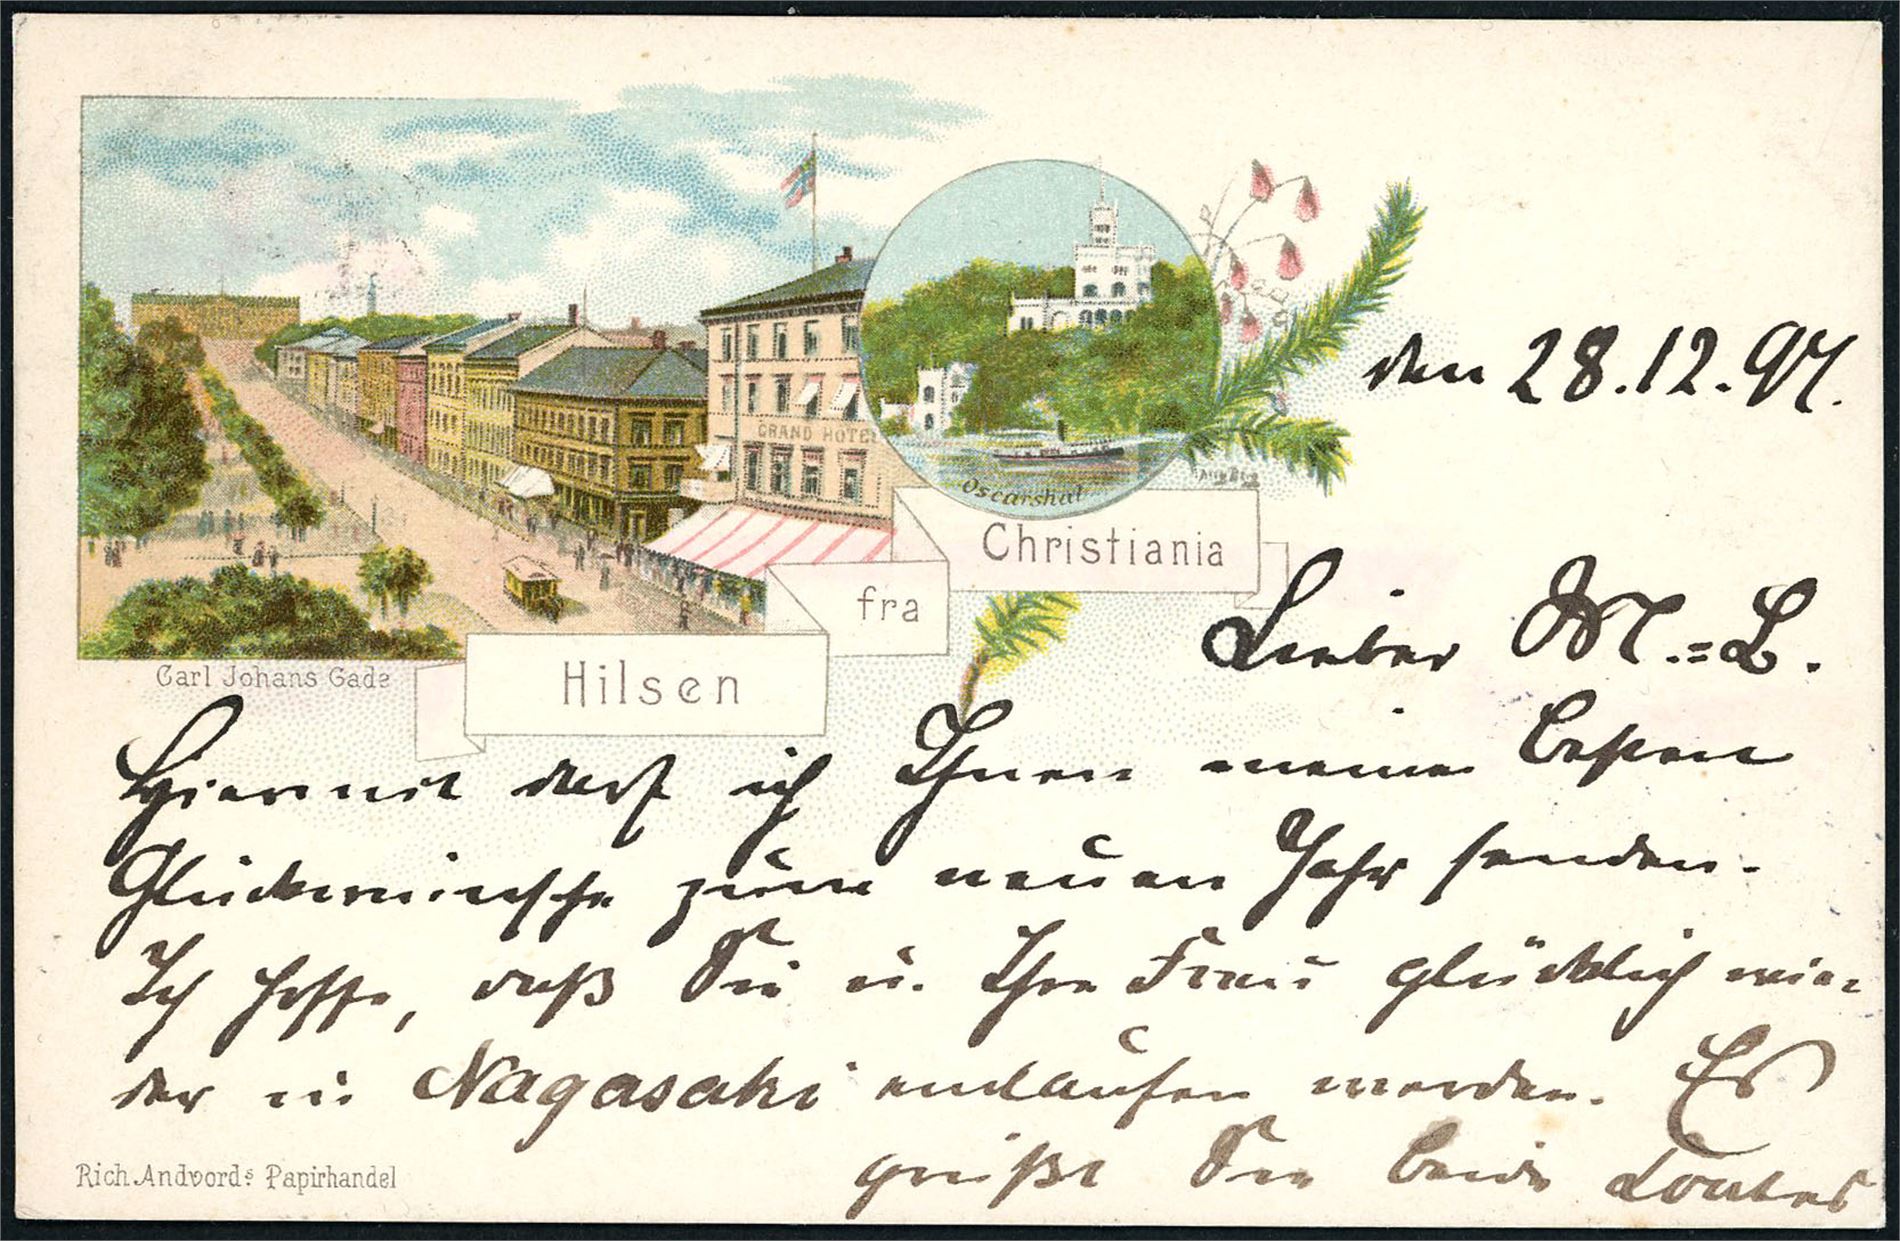 GRAND HOTEL
Oscarshal
Christiania
fra
Hilsen
Carl Johans Gade
den 28.12.97.
Lieber M.=L.
Hiermit darf ich Ihnen meine besten
Glückwünsche zum neuen Jahr senden.
Ich hoffe, daß Sie u. Ihre Frau glücklich wie=
der in Nagasaki einlaufen werden. Es
grüßt Sie beide
Rich. Andvords Papirhandel